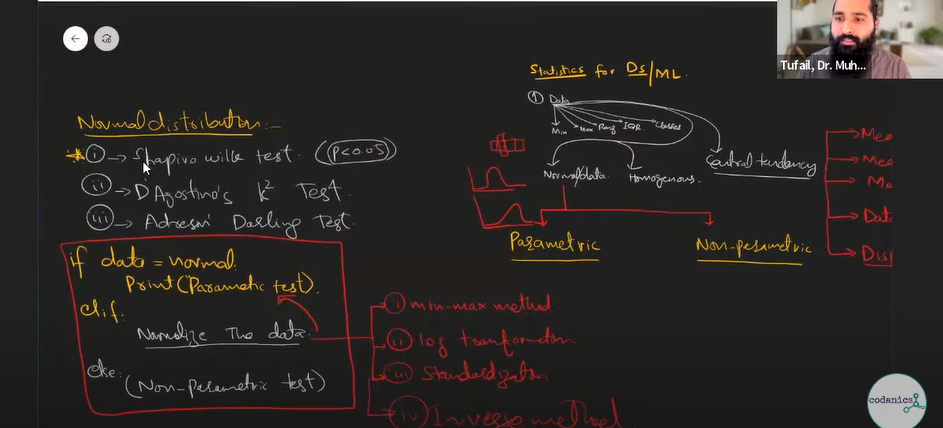 Tufail, Dr. Muh...
Statistics for DS/ML.
① Data
Min Max Rang IQR Classes
Central tendency
Normal data Homogenous.
Parametric Non-perametric
Mee
Mee
Mo
Data
Disp
Normal distribution:-
i → Shapiro wilk test. (P<0.05)
ii → D'Agostino's K² Test
iii → Adreson Darling Test.
if data = normal:
Print("Parametic test).
elif:
Normalize The data.
else:
(Non-parametric test)
i min-max method
ii log tranformation
iii Standardization
iv Inverso method
codanics